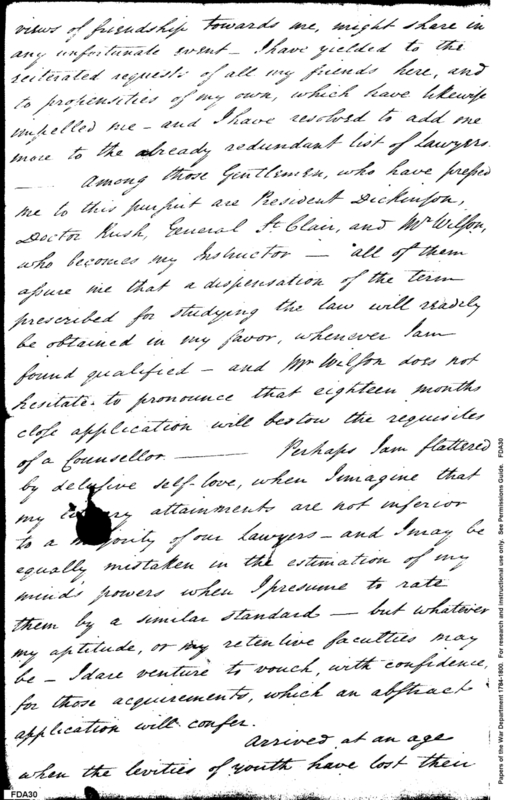 views of friendship towards me, might share in
any unfortunate event – I have yielded to the
reiterated requests of all my friends here, and
to propensities of my own, which have likewise
impelled me – and I have resolved to add one
more to the already redundant list of Lawyers.
— Among those Gentlemen, who have pressed
me to this purpose are President Dickinson,
Doctor Rush, General St. Clair, and Mr Wilson,
who becomes my Instructor – all of them
assure me that a dispensation of the term
prescribed for studying the law will readily
be obtained in my favor, whenever I am
found qualified – and Mr Wilson does not
hesitate to pronounce that eighteen months
close application will bestow the requisites
of a Counsellor — Perhaps I am flattered
by delusive self-love, when I imagine that
my attainments are not inferior
to a majority of our Lawyers – and I may be
equally mistaken in the estimation of my
mind's powers when I presume to rate
them by a similar standard – but whatever
my aptitude, or my retentive faculties may
be – I dare venture to vouch, with confidence,
for those acquirements, which an abstract
application will confer.
Arrived at an age
when the levities of youth have lost their
FDA30
Papers of the War Department 1784-1800. For research and instructional use only. See Permissions Guide. FDA30